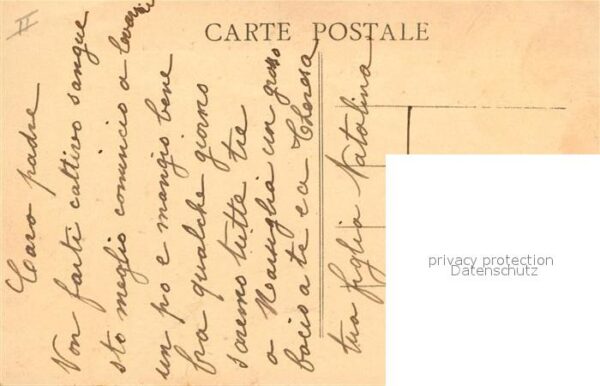 II
CARTE POSTALE
Caro padre
Non farti cattivo sangue
sto meglio comincio a
un po e mangio bene
fra qualche giorno
saremo tutte tre
a Marsiglia un grosso
bacio a te e a Theresa
tua figlia Natalina
privacy protection
Datenschutz